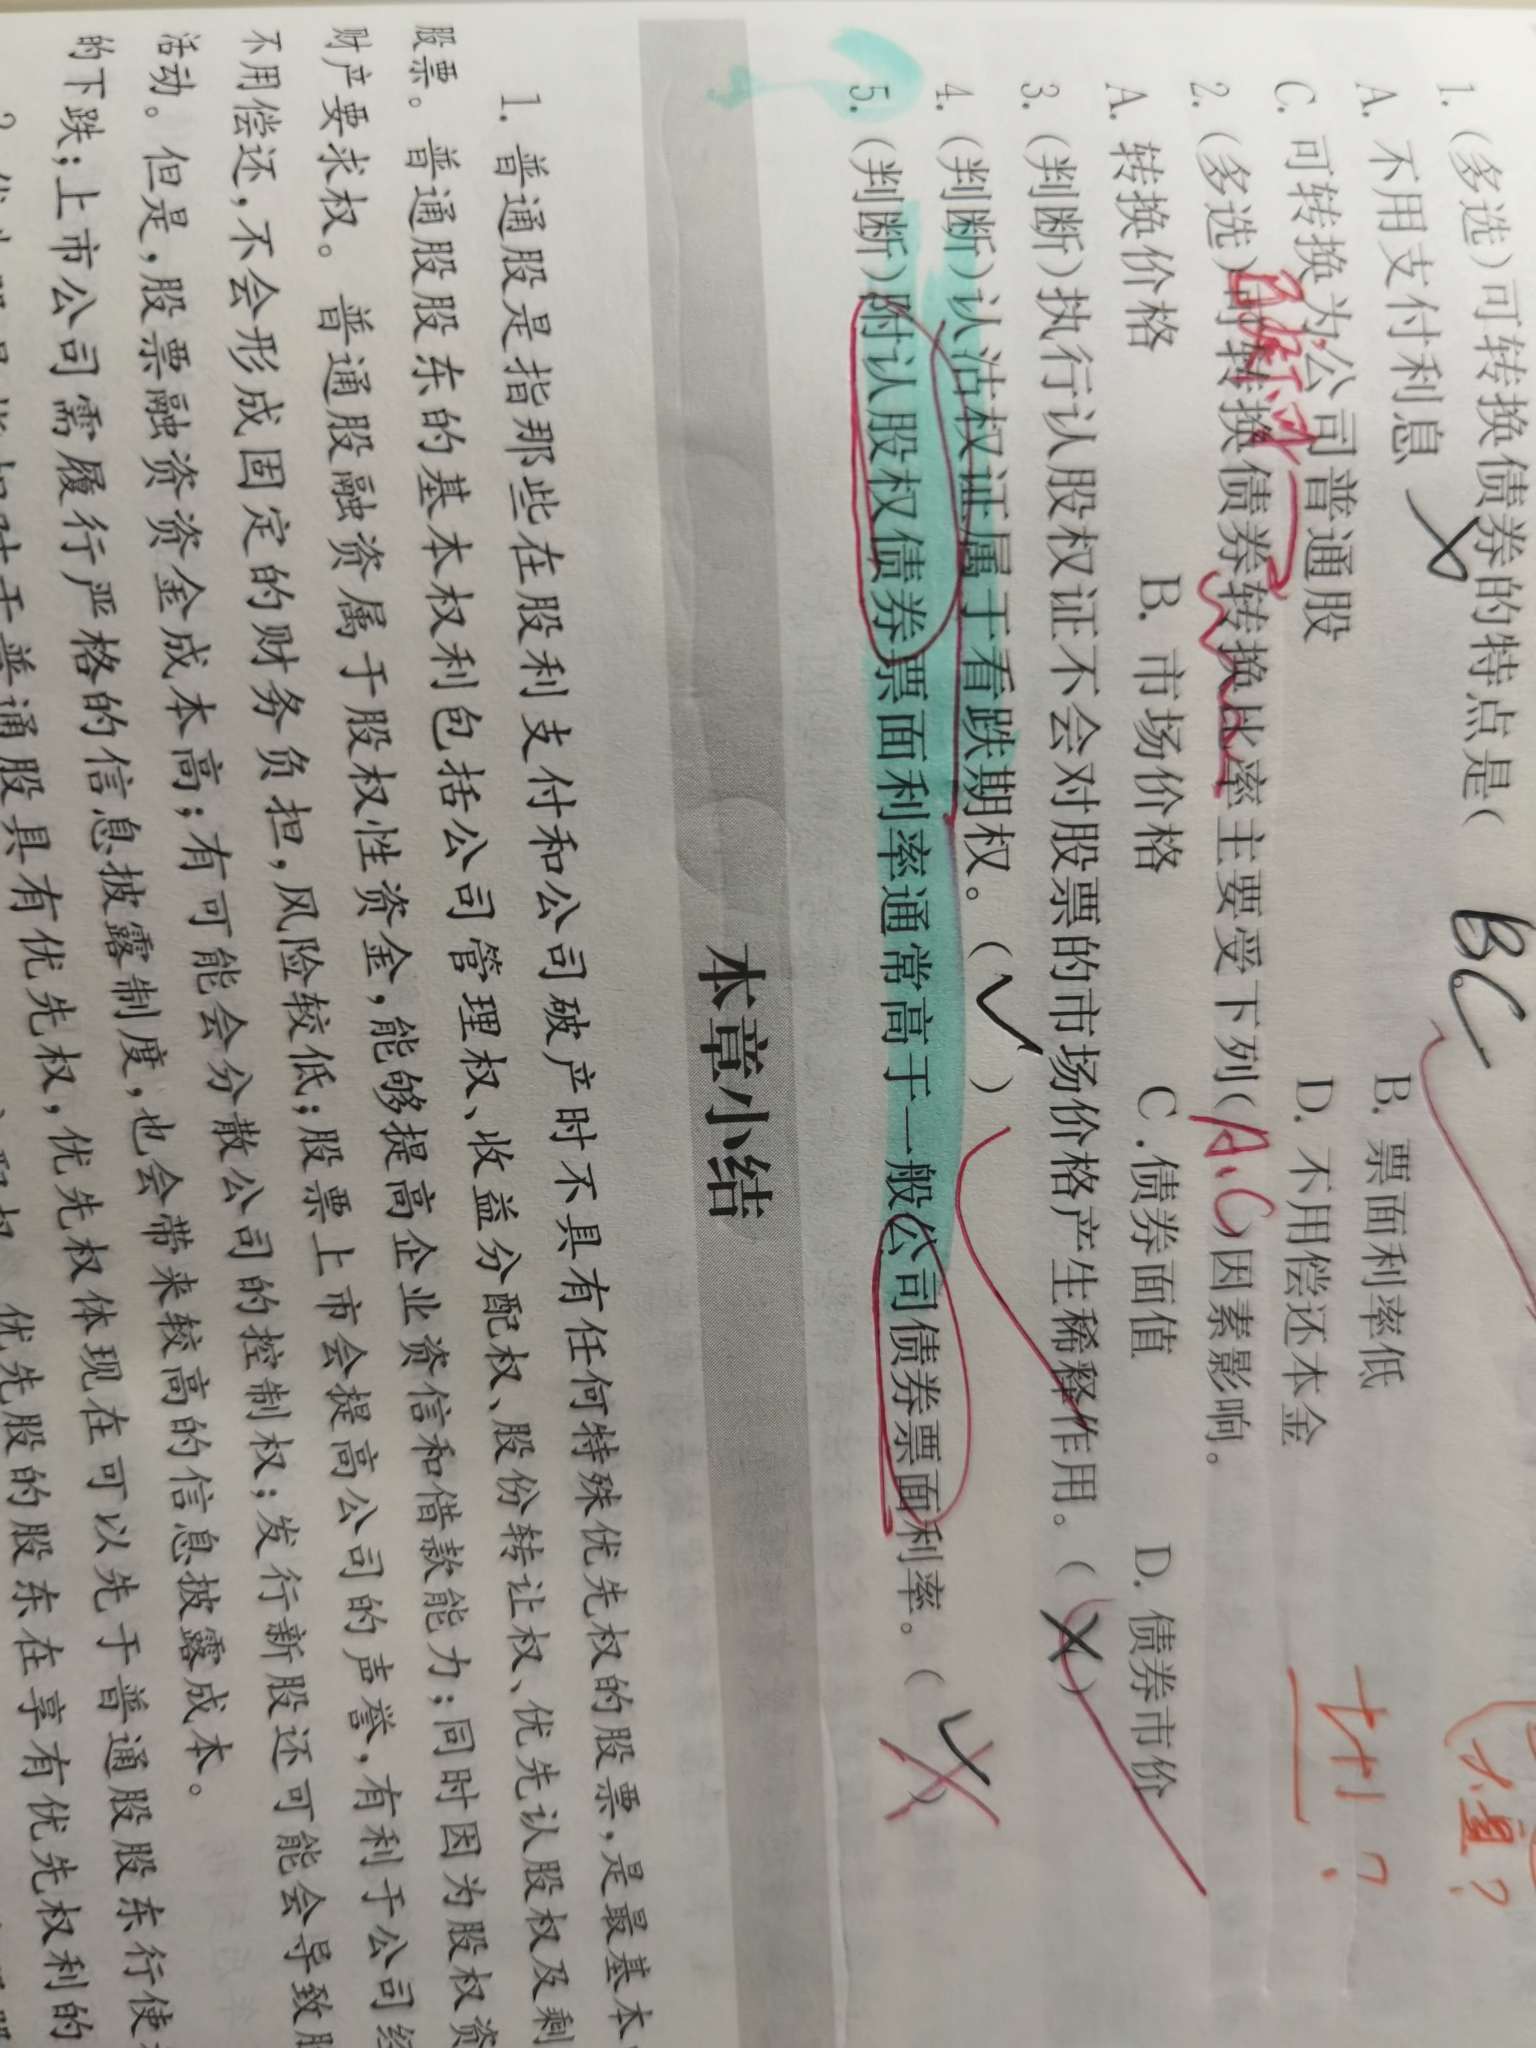 1. (多选)可转换债券的特点是( BC
A. 不用支付利息 B. 票面利率低
C. 可转换为公司普通股 D. 不用偿还本金
2. (多选)可转换债券转换比率主要受下列(A、C)因素影响。
A. 转换价格 B. 市场价格 C.债券面值 D. 债券市价
3. (判断)执行认股权证不会对股票的市场价格产生稀释作用。(×)
4. (判断)认沽权证属于看跌期权。(✓)
5. (判断)附认股权债券票面利率通常高于一般公司债券票面利率。(✓)
本章小结
1. 普通股是指那些在股利支付和公司破产时不具有任何特殊优先权的股票,是最基本
股票。普通股股东的基本权利包括公司管理权、收益分配权、股份转让权、优先认股权及剩
财产要求权。普通股融资属于股权性资金,能够提高企业资信和借款能力;同时因为股权资
不用偿还,不会形成固定的财务负担,风险较低;股票上市会提高公司的声誉,有利于公司经
活动。但是,股票融资资金成本高;有可能会分散公司的控制权;发行新股还可能会导致股
的下跌;上市公司需履行严格的信息披露制度,也会带来较高的信息披露成本。
普通股具有优先权,优先权体现在可以先于普通股股东行使
优先股的股东在享有优先权利的